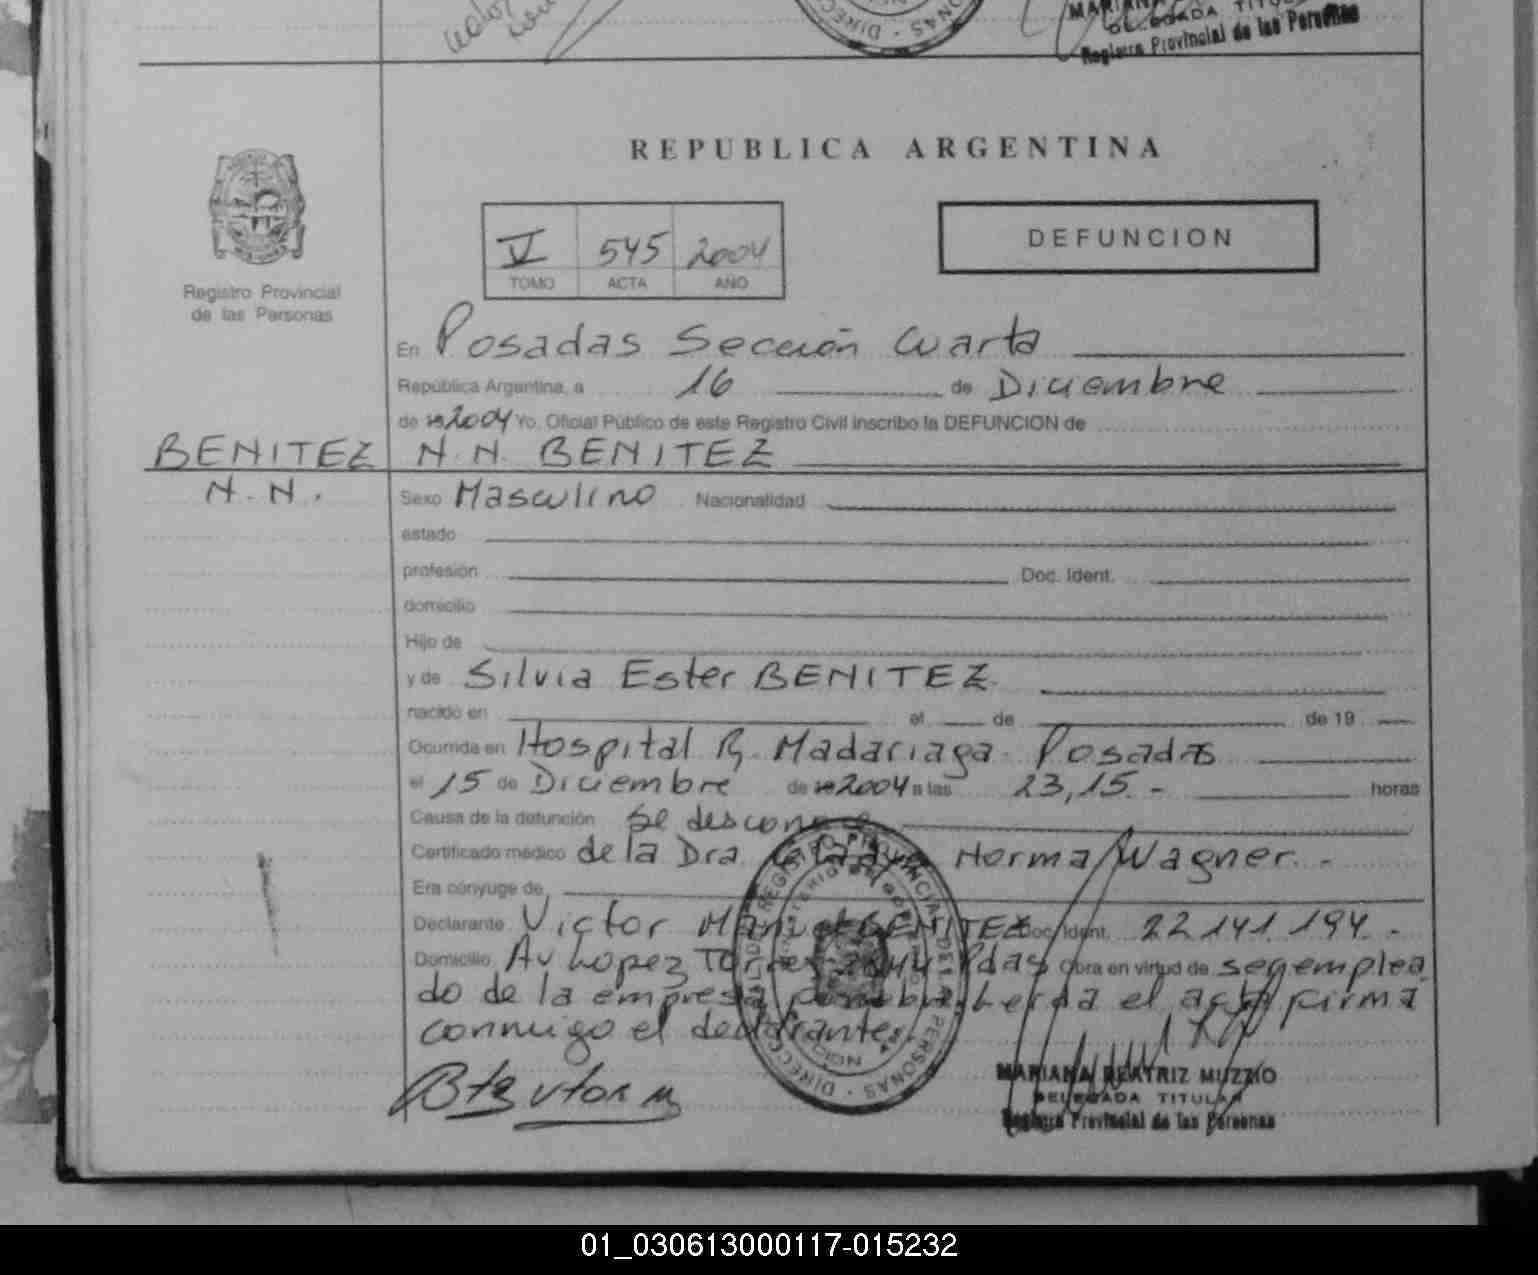 MARIANA
DELEGADA TITULAR
Registro Provincial de las Personas
REPUBLICA ARGENTINA
V 545 2004
TOMO ACTA AÑO
DEFUNCION
Registro Provincial
de las Personas
En Posadas Sección Cuarta
República Argentina, a 16 de Diciembre
de 19 2004 Yo, Oficial Público de este Registro Civil inscribo la DEFUNCION de
BENITEZ N.N. BENITEZ
N.N. Sexo Masculino Nacionalidad
estado
profesión Doc. Ident.
domicilio
Hijo de
y de Silvia Ester BENITEZ
nacido en el de de 19
Ocurrida en Hospital R. Madariaga Posadas
el 15 de Diciembre de 19 2004 a las 23,15.- horas
Causa de la defunción Se desconoce
Certificado médico de la Dra. Norma Wagner.-
Era cónyuge de
Declarante Victor Manuel BENITEZ Doc. Ident. 22.141.194.-
Domicilio Av Lopez Torres Pdas Obra en virtud de ser emplea
do de la empresa el acta firma
conmigo el declarante.
MARIANA BEATRIZ MUZZIO
DELEGADA TITULAR
Registro Provincial de las Personas
01_030613000117-015232